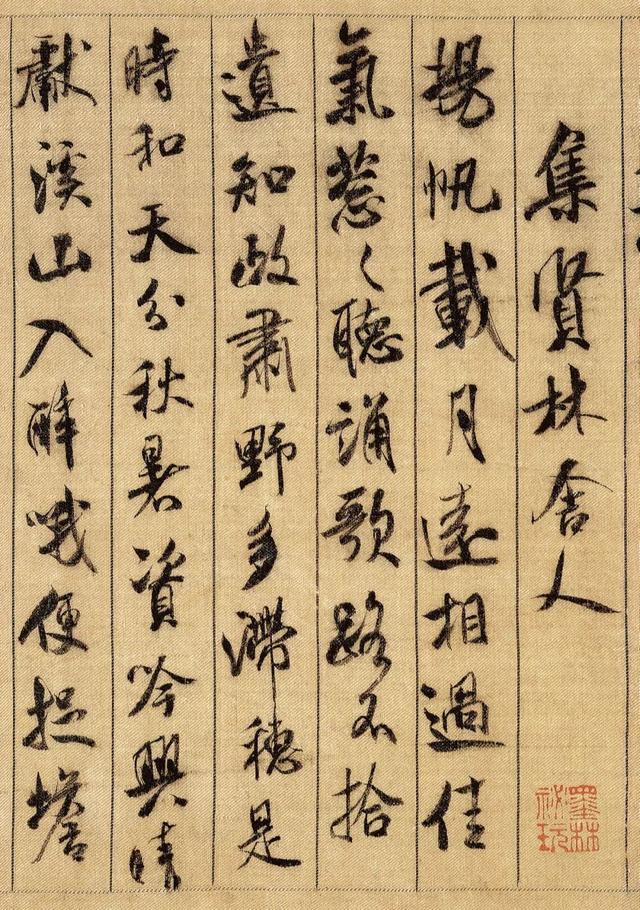 集賢林舍人
揚帆載月遠相過佳
氣蔥〻聽誦歌路不拾
遺知政肅野多滯穗是
時和天分秋暑資吟興晴
獻溪山入醉哦便捉蟾
墨林祕玩